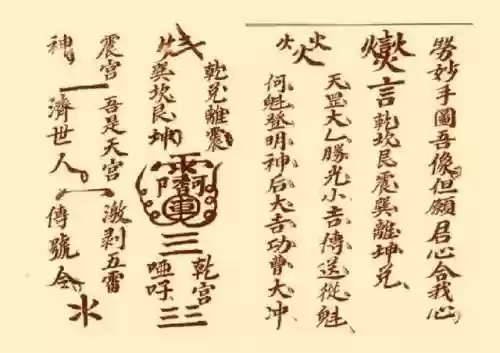 勞妙手圖吾像但願君心合我心
言乾坎艮震巽離坤兌
火火火
天罡大乙勝光小吉傳送從魁
何魁登明神后大吉功曹大冲
乾兌離震
巽坎艮坤
三
乾宮
三三
震宮 吾是天宮 激剥五雷
神 濟世人 傳號令